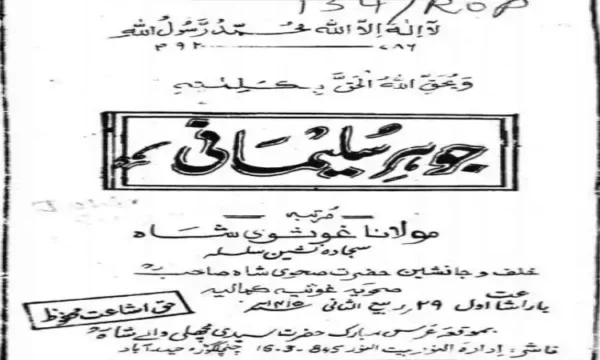 134/ROP
لا اِلٰهَ اِلاَّ اللّٰه مُحَمَّدٌ رَّسُولُ اللّٰه
۷۸۶ ۹۲
وَ يُحِقُّ اللّٰهُ الْحَقَّ بِكَلِمٰتِهٖ
جوہرِ سُلیمانی
مُرتبہ
مولانا غوثوی شاہ
سجادہ نشین سلسلہ
خلف و جانشین حضرت صحوی شاہ صاحبؒ
صحویہ غوثیہ کمالیہ
بار اشاعت اول ۲۹ ربیع الثانی
حق اشاعت محفوظ
بموقعہ عرس مبارک حضرت سیدی مچھلی والے شاہؒ
ناشر: ادارہ النور بیت النور 16-3-845 چنچلگوڑہ حیدرآباد